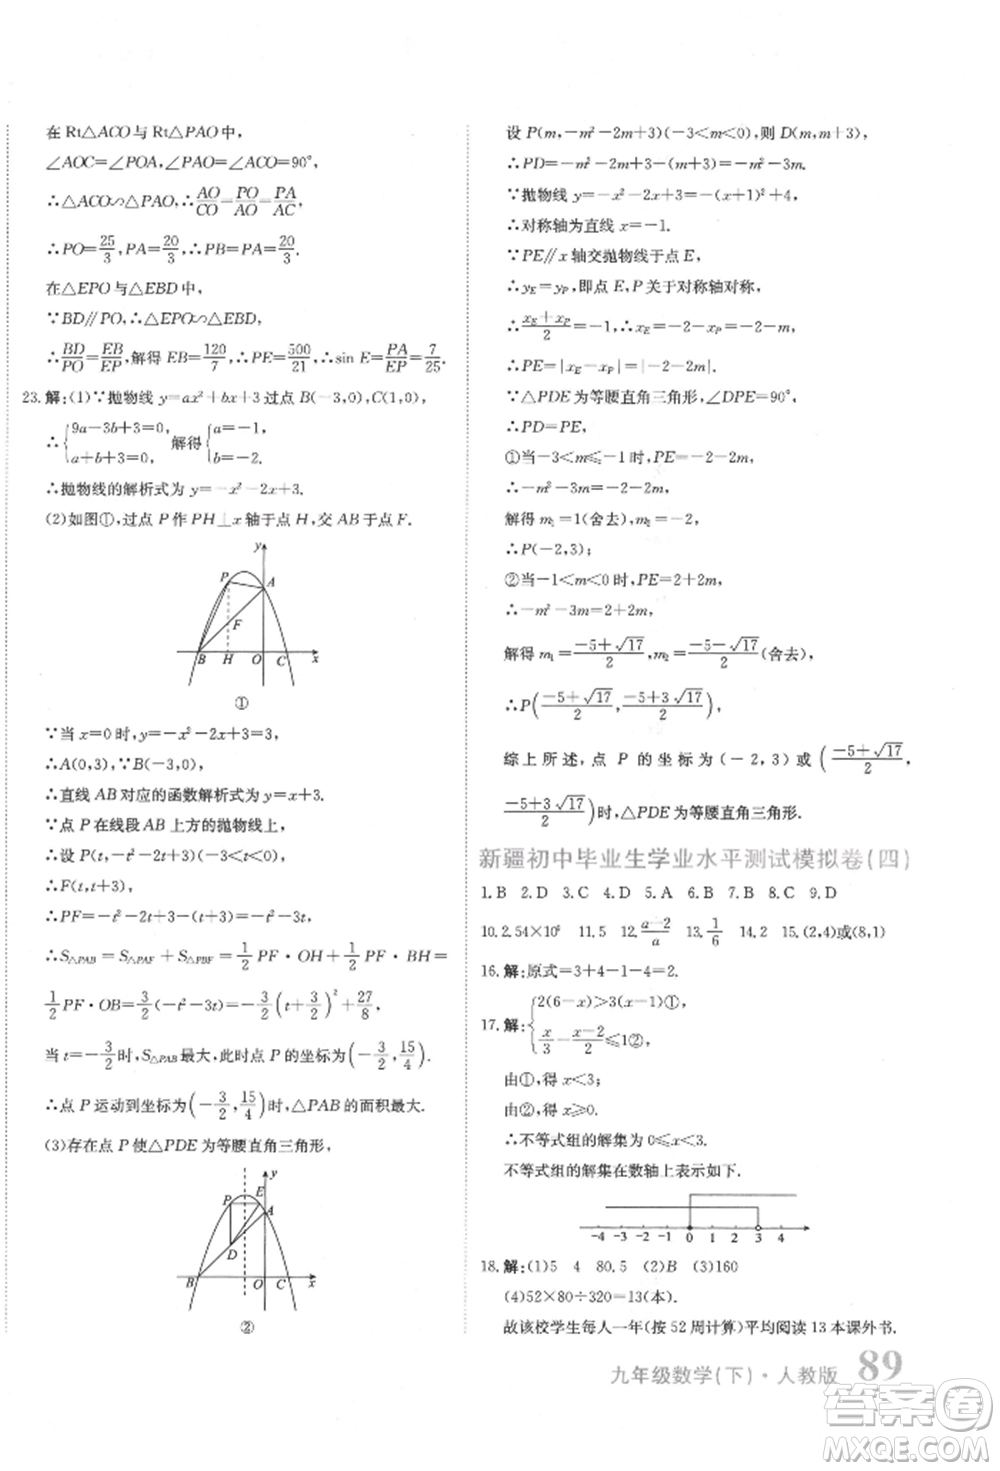 在 Rt△ACO与 Rt△PAO中,
∠AOC=∠POA,∠PAO=∠ACO=90°,
∴△ACO∽△PAO,∴AO/CO=PO/AO=PA/AC,
∴PO=25/3,PA=20/3,∴PB=PA=20/3.
在△EPO与△EBD中,
∵BD∥PO,∴△EPO∽△EBD,
∴BD/PO=EB/EP,解得 EB=120/7,∴PE=500/21,∴sin E=PA/EP=7/25.
23.解:(1)∵抛物线 y=ax²+bx+3过点 B(-3,0),C(1,0),
∴{9a-3b+3=0, a+b+3=0, 解得{a=-1, b=-2.
∴抛物线的解析式为 y=-x²-2x+3.
(2)如图①,过点 P 作 PH⊥x 轴于点 H,交 AB于点 F.
y
P
A
F
B H O C x
①
∵当 x=0时,y=-x²-2x+3=3,
∴A(0,3),∵B(-3,0),
∴直线 AB对应的函数解析式为 y=x+3.
∵点 P在线段AB上方的抛物线上,
∴设 P(t,-t²-2t+3)(-3<t<0),
∴F(t,t+3),
∴PF=-t²-2t+3-(t+3)=-t²-3t,
∴S△PAB=S△PAF+S△PBF=1/2 PF·OH+1/2 PF·BH=
1/2 PF·OB=3/2(-t²-3t)=-3/2(t+3/2)²+27/8,
当 t=-3/2时,S△PAB最大,此时点 P的坐标为(-3/2,15/4).
∴点 P运动到坐标为(-3/2,15/4),△PAB的面积最大.
(3)存在点 P使△PDE为等腰直角三角形,
y
P E
A
D
B O C x
②
设 P(m,-m²-2m+3)(-3<m<0),则 D(m,m+3),
∴PD=-m²-2m+3-(m+3)=-m²-3m.
∵抛物线 y=-x²-2x+3=-(x+1)²+4,
∴对称轴为直线 x=-1.
∵PE∥x 轴交抛物线于点 E,
∴yE=yP,即点 E、P关于对称轴对称,
∴(xE+xP)/2=-1,∴xE=-2-xP=-2-m,
∴PE=|xE-xP|=|-2-2m|.
∵△PDE为等腰直角三角形,∠DPE=90°,
∴PD=PE,
①当-3<m≤-1时,PE=-2-2m,
∴-m²-3m=-2-2m,
解得 m₁=1(舍去),m₂=-2,
∴P(-2,3);
②当-1<m<0时,PE=2+2m,
∴-m²-3m=2+2m,
解得 m₁=(-5+√17)/2,m₂=(-5-√17)/2(舍去),
∴P((-5+√17)/2,(-5+3√17)/2),
综上所述,点 P 的坐标为(-2,3)或((-5+√17)/2,
(-5+3√17)/2)时,△PDE为等腰直角三角形.
新疆初中毕业生学业水平测试模拟卷(四)
1.B 2.D 3.C 4.D 5.A 6.B 7.B 8.C 9.D
11.5 12.(a-2)/a 13.1/6 14.2 15.(2,4)或(8,1)
16.解:原式=3+4-1-4=2.
17.解:{2(6-x)>3(x-1)①, x/3-(x-2)/2≤1②,
由①,得 x<3;
由②,得 x≥0.
∴不等式组的解集为 0≤x<3.
不等式组的解集在数轴上表示如下.
-4 -3 -2 -1 0 1 2 3 4
18.解:(1)5 4 80.5 (2)B (3)160
(4)52×80÷320=13(本).
故该校学生每人一年(按 52 周计算)平均阅读 13 本课外书.
九年级数学(下)·人教版 89
答案圈
MXQE.COM